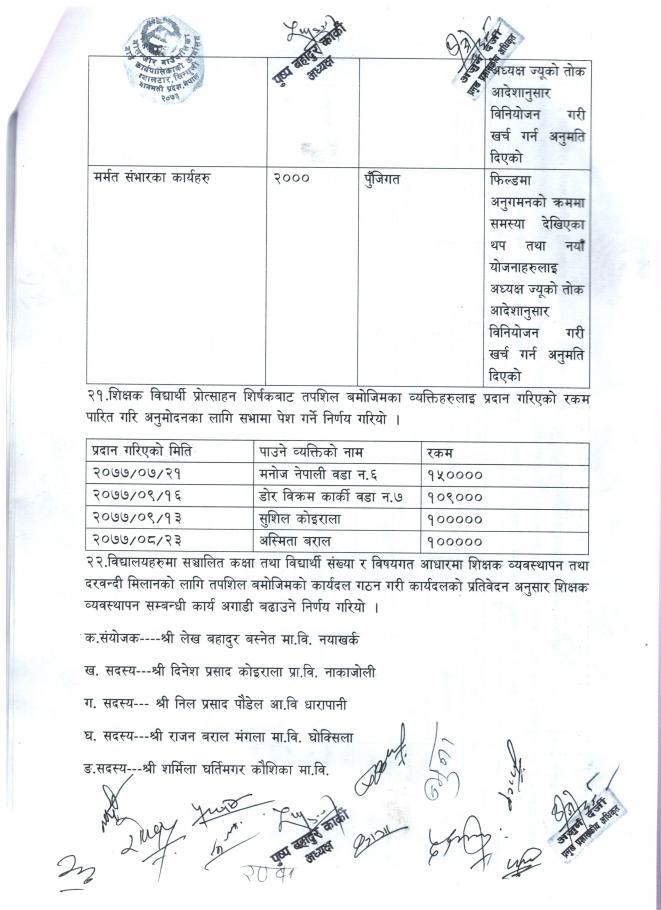 गाउँ कार्यपालिकाको कार्यालय
२०७३
पुष्प बहादुर कार्की
अध्यक्ष
प्रमुख प्रशासकीय अधिकृत
अध्यक्ष ज्यूको तोक
आदेशानुसार
विनियोजन गरी
खर्च गर्न अनुमति
दिएको
मर्मत संभारका कार्यहरु २००० पुँजिगत फिल्डमा
अनुगमनको क्रममा
समस्या देखिएका
थप तथा नयाँ
योजनाहरुलाइ
अध्यक्ष ज्यूको तोक
आदेशानुसार
विनियोजन गरी
खर्च गर्न अनुमति
दिएको
२१.शिक्षक विद्यार्थी प्रोत्साहन शिर्षकबाट तपशिल बमोजिमका व्यक्तिहरुलाइ प्रदान गरिएको रकम
पारित गरि अनुमोदनका लागि सभामा पेश गर्ने निर्णय गरियो ।
प्रदान गरिएको मिति पाउने व्यक्तिको नाम रकम
२०७७/०७/२१ मनोज नेपाली वडा न.६ १५००००
२०७७/०९/१६ डोर विक्रम कार्की वडा न.७ १०९०००
२०७७/०९/१३ सुशिल कोइराला १०००००
२०७७/०८/२३ अस्मिता बराल १०००००
२२.विद्यालयहरुमा सञ्चालित कक्षा तथा विद्यार्थी संख्या र विषयगत आधारमा शिक्षक व्यवस्थापन तथा
दरवन्दी मिलानको लागि तपशिल बमोजिमको कार्यदल गठन गरी कार्यदलको प्रतिवेदन अनुसार शिक्षक
व्यवस्थापन सम्बन्धी कार्य अगाडी बढाउने निर्णय गरियो ।
क.संयोजक----श्री लेख बहादुर बस्नेत मा.वि. नयाखर्क
ख. सदस्य---श्री दिनेश प्रसाद कोइराला प्रा.वि. नाकाजोली
ग. सदस्य--- श्री निल प्रसाद पौडेल आ.वि धारापानी
घ. सदस्य---श्री राजन बराल मंगला मा.वि. घोक्सिला
ङ.सदस्य---श्री शर्मिला घर्तिमगर कौशिका मा.वि.
पुष्प बहादुर कार्की
अध्यक्ष
प्रमुख प्रशासकीय अधिकृत